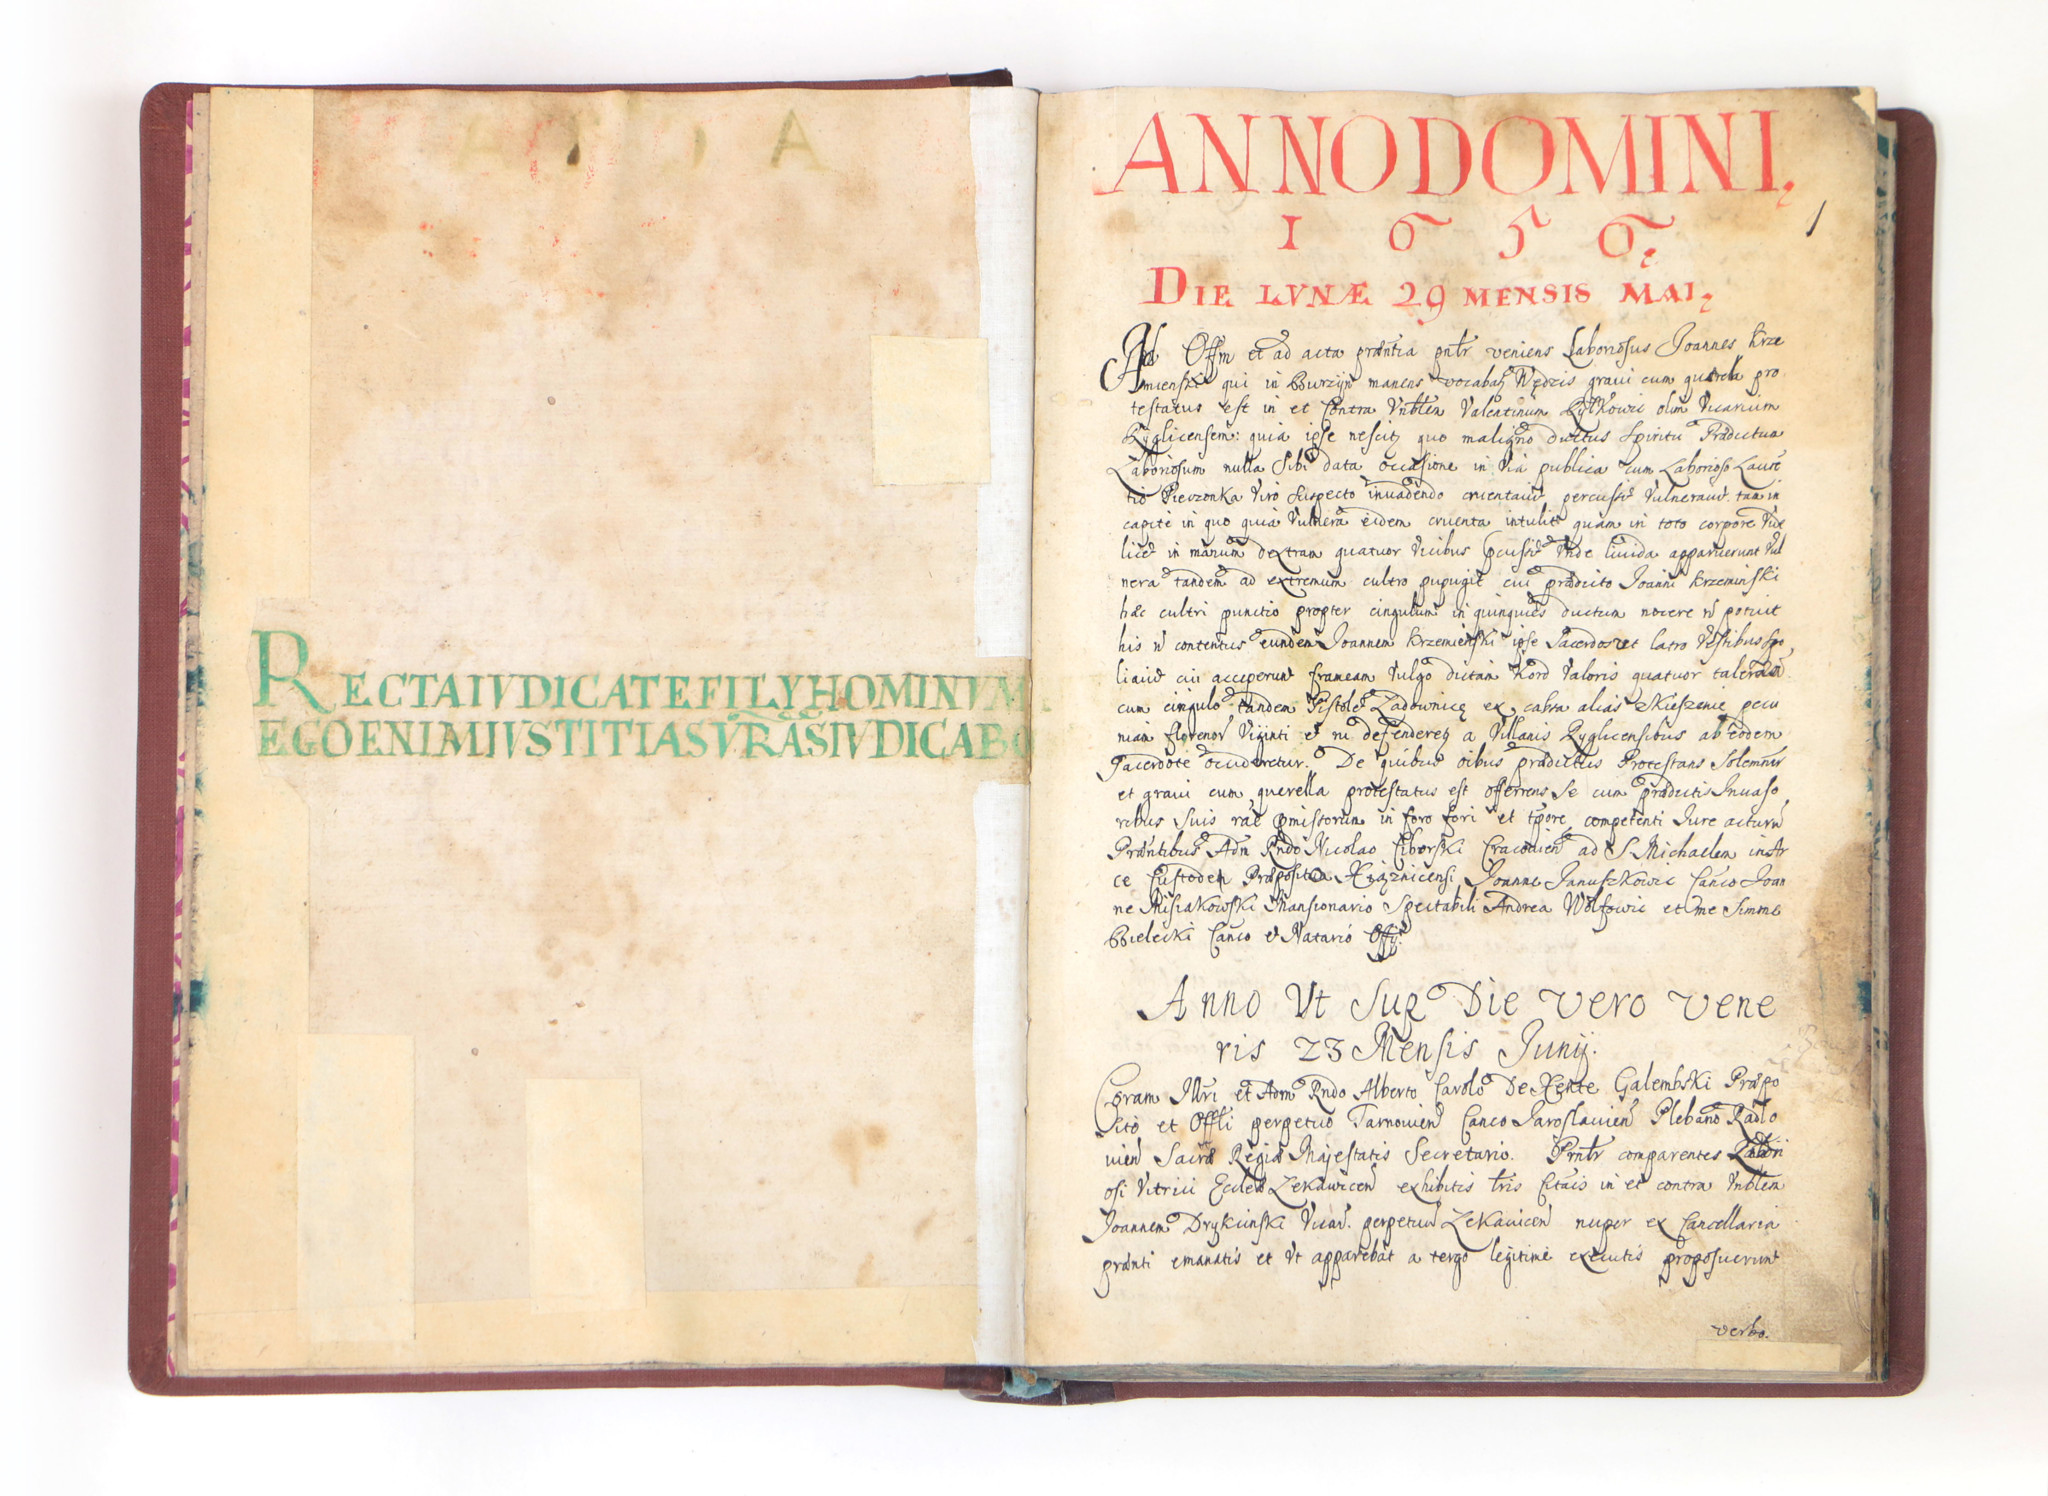 RECTA IVDICATE FILY HOMINVM
EGO ENIM IVSTITIAS VRAS IVDICABO
ANNO DOMINI,
1656,
DIE LVNÆ 29 MENSIS MAI,
1
Ad Offm et ad acta præntia pntr veniens Laboriosus Joannes Krze
mienski qui in manens Wędzis graui cum querela pro
testatus est in et contra Vnblem Valentinum Rylkowic olim Vicarium
Ryglicensem: quia ipse nescit, quo maligno ductus Spiritu Prædictum
Laboriosum nulla Sibi data occasione in via publica cum Laborioso Laure
tio Pierzonka Viro Suspecto inuadendo cruentauit percussit Vulnerauit. tam in
capite in quo quia Vulnera eidem cruenta intulit quam in toto corpore Vide
licet in manum dextram quatuor vicibus pcussit Vnde liuida apparuerunt Vul
nera tandem ad extremum cultro pupugit cui prædicto Joanni Krzemiński
hæc cultri punctio propter cingulum in quinquies ductum nocere n potuit
his n contentus eundem Joannem Krzemieński ipse Sacerdos et latro Vestibus spo
liauit cui acceperunt frameam Vulgo dictam Kord Valoris quatuor taleror
cum cingulo tandem Pistolet Ladownicę ex cassa alias zkieszenie pecu
niam florenor Viginti et ni defenderetr a Villanis Ryglicensibus ab eodem
Sacerdote occideretur. De quibus oibus prædictus Protestans Solemnr
et graui cum querella protestatus est offerens Se cum prædictis Inuaso
ribus Suis rae pmissorum in foro fori et tpore competenti Jure acturu
Præntibus Adm Rndo Nicolao Ciborski Cracouien ad S Michaelem in Ar
ce Custode, Præposito Xiąznicensi Joanne Januszkowic Canco Joan
ne Misiakowski Mansionario Spectabili Andrea Wolfowic et me Simone
Bielecki Canco et Notario Offij.
Anno Vt Supra Die vero Vene
ris 23 Mensis Junij.
Coram Illri et Adm Rndo Alberto Carolo De Xente Galembski Præpo
sito et Offli perpetuo Tarnouien Canco Jaroslauien Plebano Radlo
uien Sacræ Regiæ Majestatis Secretario. Prntr comparentes Labori
osi Vitrici Eccles Zekawicen exhibitis lris Citais in et contra Vnblem
Joannem Drykuński Vicar. perpetuu Zekauicen nuper ex Cancellaria
prænti emanatis et Vt apparebat a tergo legitime executis proposuerunt
verbo.